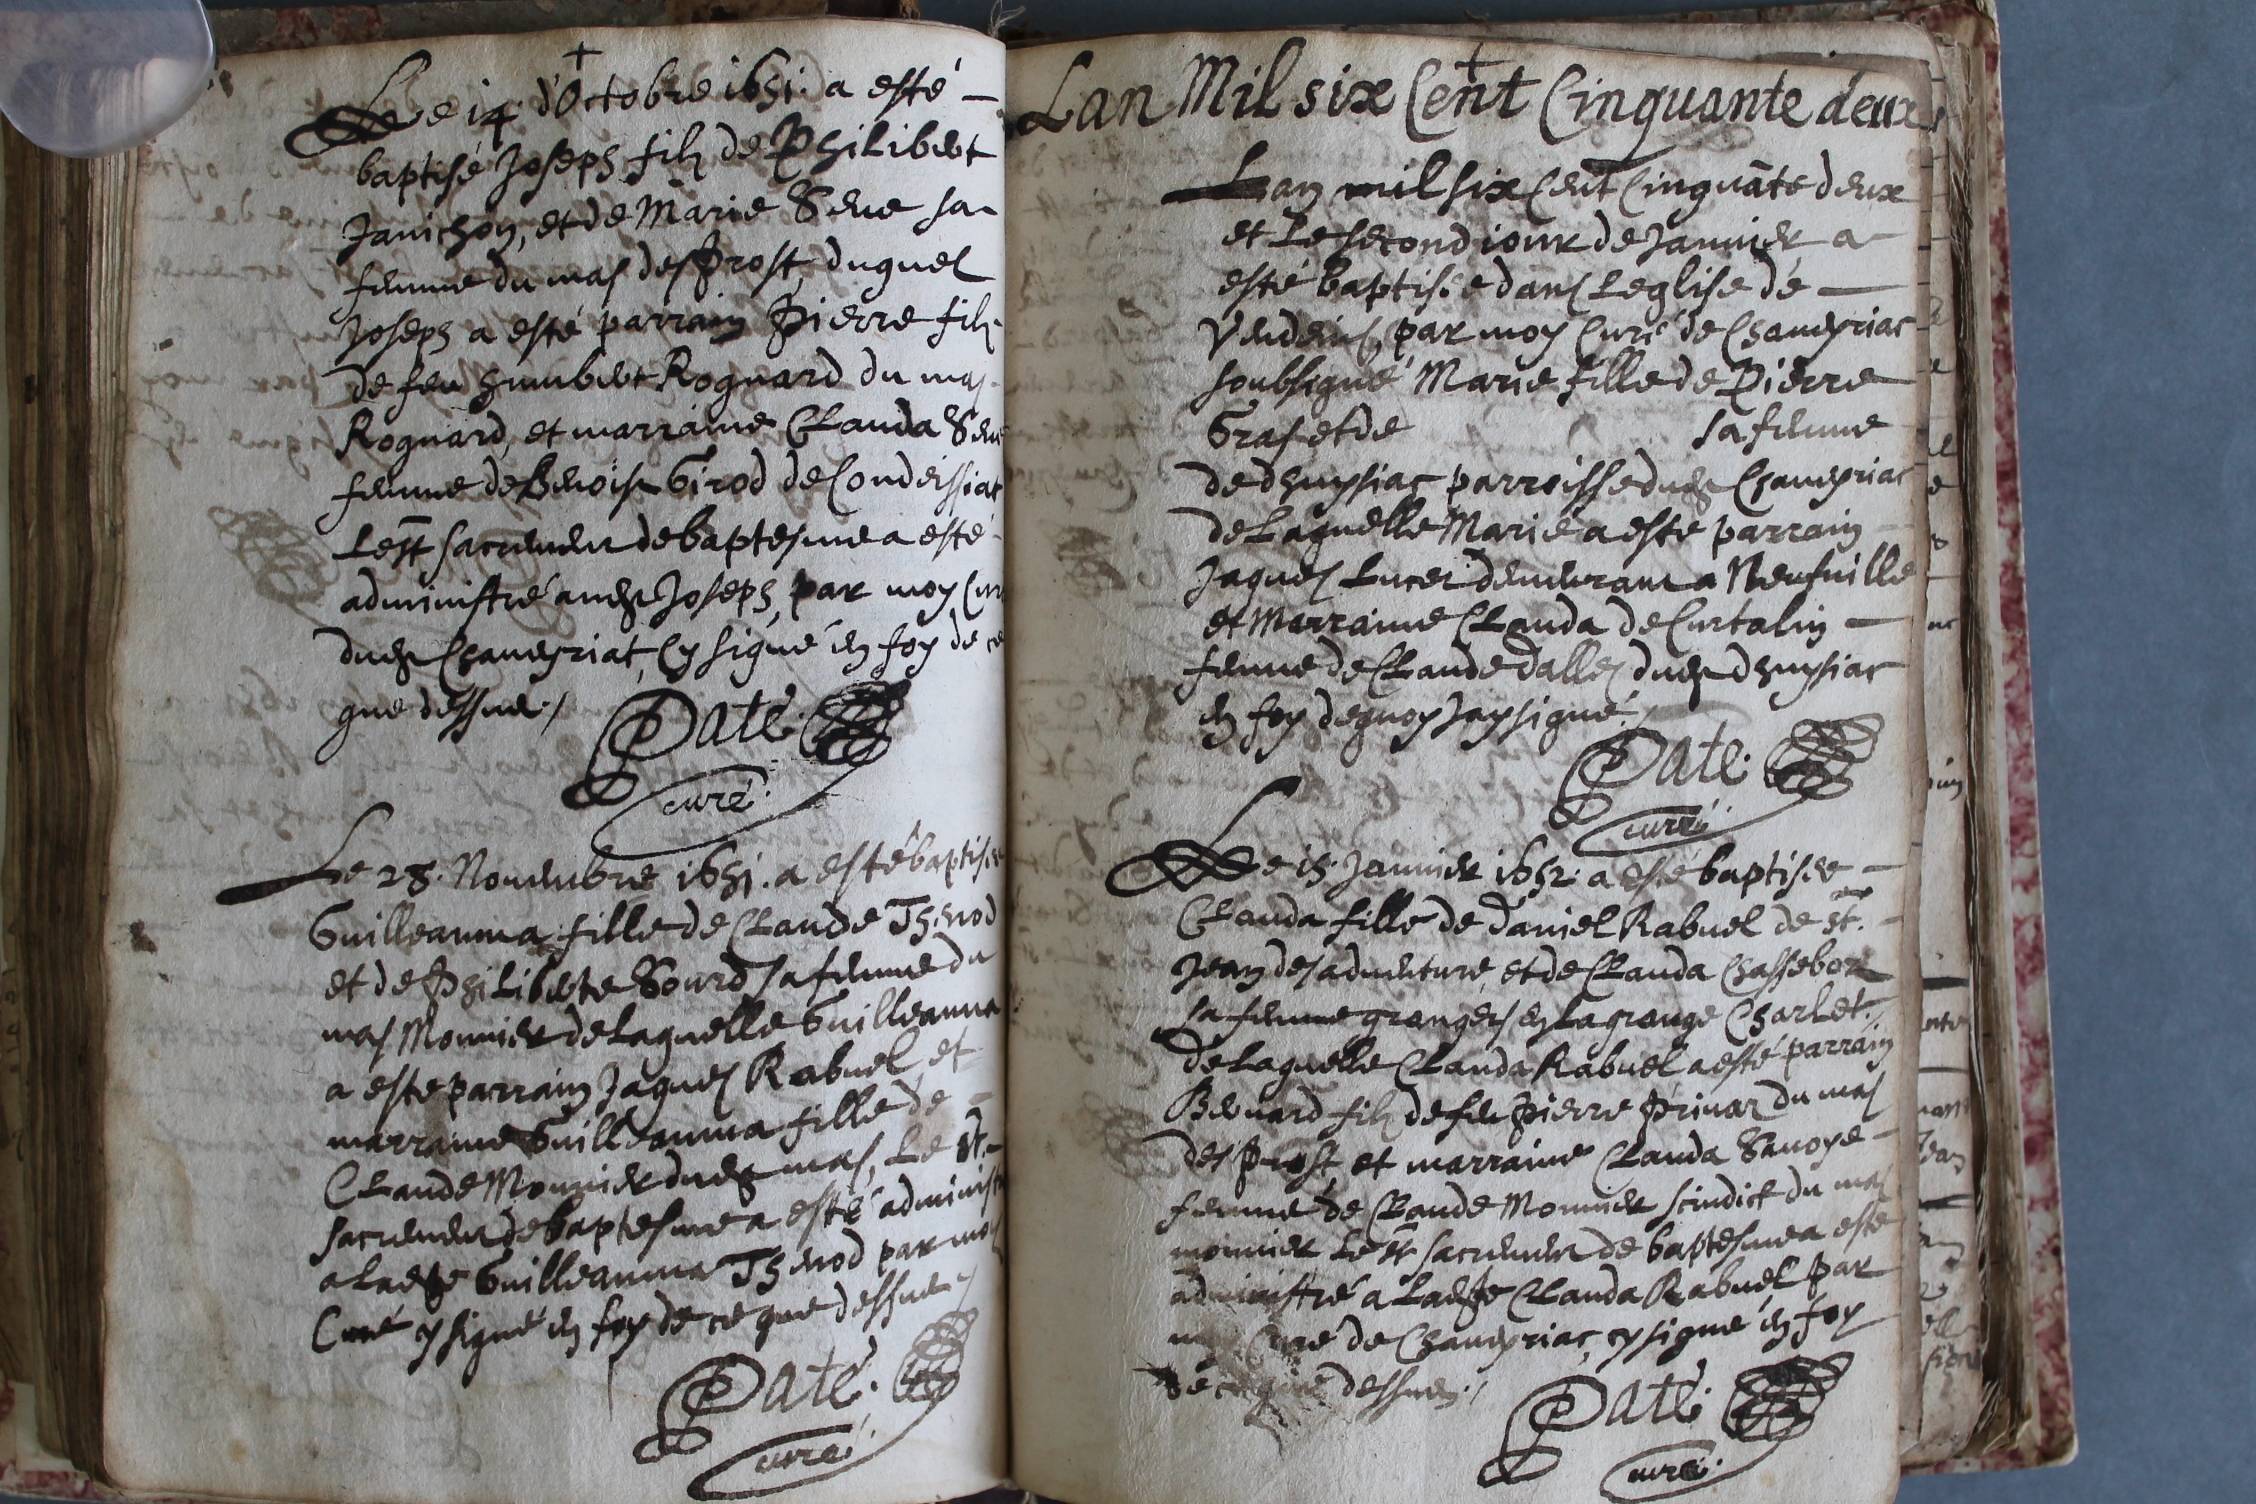 Le 14 d'Octobre 1651. a esté
baptisé Joseph filz de Philibert
Janichon, et de Marie Seue sa
femme du mas des Prost, duquel
Joseph a esté parrain Pierre filz
de feu humbert Rognard du mas
Rognard, et marraine Clauda Seue
femme de Benoist Girod de Condeissiat
Le st sacrement de baptesme a esté
administré audt Joseph, par moy Curé
dudt Chaueyriat, Cy signé en foy de ce
que dessus./
Paté.
curé.
Le 28. Nouembre 1651. a esté baptisée
Guilleauma fille de Claude Theuod
et de Philiberte Sourd sa femme du
mas Monnier de Laquelle Guilleauma
a este parrain Jaques Rabuel et
marraine Guilleauma fille de
Claude Monnier dudt mas, Le st.
sacrement de baptesme a esté administré
a Ladte Guilleauma Theuod par moy
Curé cy signé en foy de ce que dessus./
Paté.
curé.
Lan Mil six Cent Cinquante deux
Lan mil six Cent Cinquāte deux
et Le second iour de Januier a
esté baptisée dans Leglise de
Vendeins, par moy Curé de Chaueyriac
soubsigné Marie fille de Pierre
Gras et de sa femme
de dhuysiac parroisse dudt Chaueyriac
de Laquelle Marie a este parrain
Jaques Lucei demeurant a Neufuille
et Marraine Clauda de Curtalin
femme de Claude dalles dudt dhuysiac
en foy dequoy Jay signé./
Paté.
curé.
Le 15. Januier 1652. a esté baptisée
Clauda fille de daniel Rabuel de st.
Jean des aduenture, et de Clauda Chassebor
sa femme grangers en La grange Charlet.
de Laquelle Clauda Rabuel a esté parrain
Benard filz de feu Pierre Priuar du mas
des Prost, et marraine Clauda Sauoye
femme de Claude Monnier scindict du mas
monnier Le st sacrement de baptesme a este
administré a Ladte Clauda Rabuel par
moy Curé de Chaueyriac, cy signé en foy
de ce que dessus./
Paté.
curé.